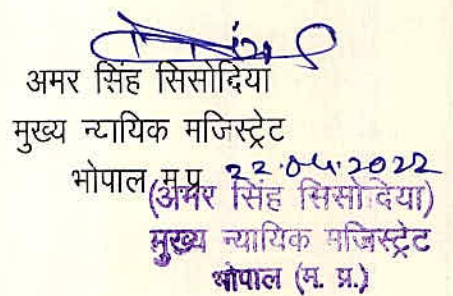 अमर सिंह सिसोदिया
मुख्य न्यायिक मजिस्ट्रेट
भोपाल म.प्र. 22.04.2022
(अमर सिंह सिसोदिया)
मुख्य न्यायिक मजिस्ट्रेट
भोपाल (म. प्र.)